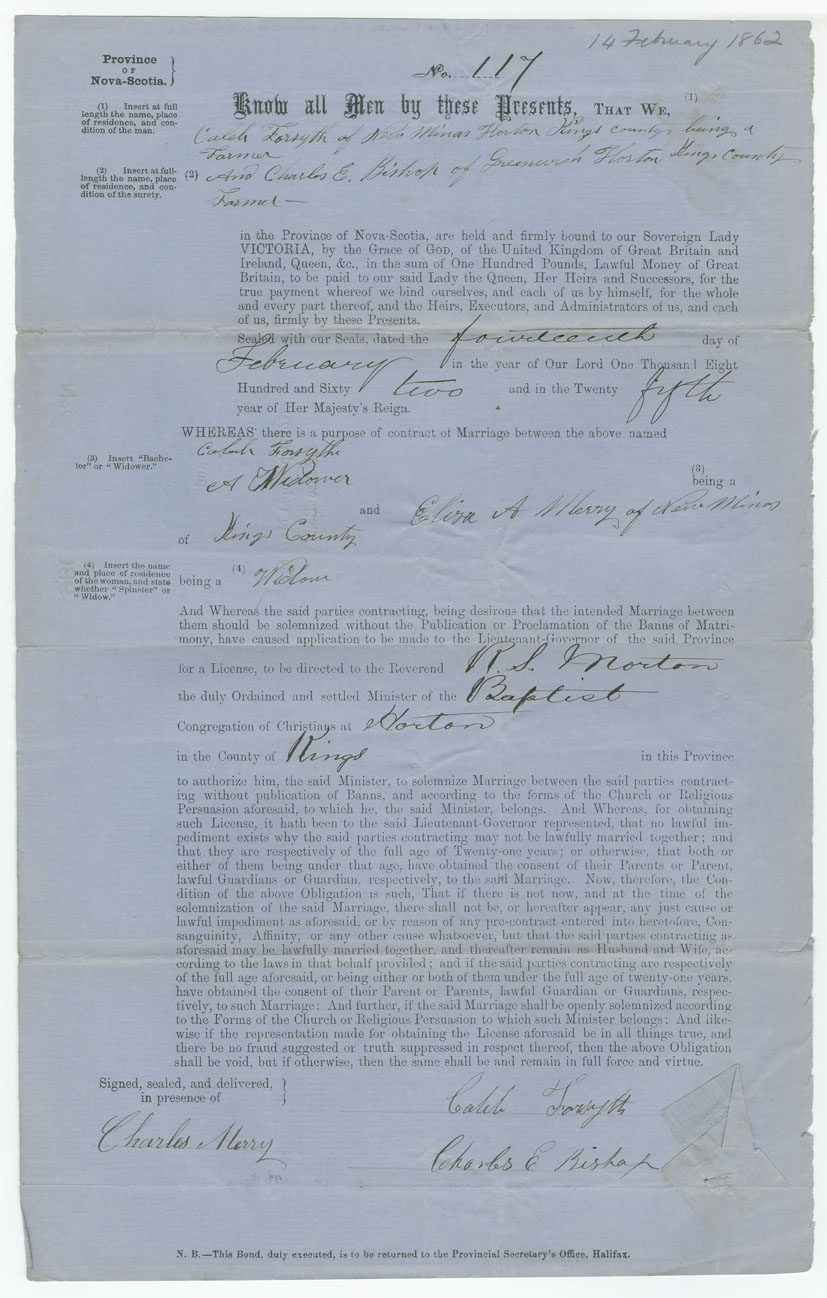 14 February 1862
Province
OF
Nova-Scotia.
No. 117
Know all Men by these Presents, THAT WE, (1)
(1) Insert at full
length the name, place
of residence, and con-
dition of the man.
Caleb Forsyth of New Minas Horton Kings county being a
Farmer
(2) Insert at full-
length the name, place
of residence, and con-
dition of the surety.
(2) And Charles E. Bishop of Greenwich Horton Kings County
Farmer —
in the Province of Nova-Scotia, are held and firmly bound to our Sovereign Lady
VICTORIA, by the Grace of GOD, of the United Kingdom of Great Britain and
Ireland, Queen, &c., in the sum of One Hundred Pounds, Lawful Money of Great
Britain, to be paid to our said Lady the Queen, Her Heirs and Successors, for the
true payment whereof we bind ourselves, and each of us by himself, for the whole
and every part thereof, and the Heirs, Executors, and Administrators of us, and each
of us, firmly by these Presents.
Sealed with our Seals, dated the fourteenth day of
February in the year of Our Lord One Thousand Eight
Hundred and Sixty two and in the Twenty fifth
year of Her Majesty's Reign.
WHEREAS there is a purpose of contract of Marriage between the above named
Caleb Forsythe
(3) Insert "Bache-
lor" or "Widower."
(3)
A Widower being a
and Eliza A Merry of New Minas
of Kings County
(4) Insert the name
and place of residence
of the woman, and state
whether "Spinster" or
"Widow."
being a (4) Widow
And Whereas the said parties contracting, being desirous that the intended Marriage between
them should be solemnized without the Publication or Proclamation of the Banns of Matri-
mony, have caused application to be made to the Lieutenant-Governor of the said Province
for a License, to be directed to the Reverend R. S. Morton
the duly Ordained and settled Minister of the Baptist
Congregation of Christians at Horton
in the County of Kings in this Province
to authorize him, the said Minister, to solemnize Marriage between the said parties contract-
ing without publication of Banns, and according to the forms of the Church or Religious
Persuasion aforesaid, to which he, the said Minister, belongs. And Whereas, for obtaining
such License, it hath been to the said Lieutenant-Governor represented, that no lawful im-
pediment exists why the said parties contracting may not be lawfully married together; and
that they are respectively of the full age of Twenty-one years; or otherwise, that both or
either of them being under that age, have obtained the consent of their Parents or Parent,
lawful Guardians or Guardian, respectively, to the said Marriage. Now, therefore, the Con-
dition of the above Obligation is such, That if there is not now, and at the time of the
solemnization of the said Marriage, there shall not be, or hereafter appear, any just cause or
lawful impediment as aforesaid, or by reason of any pre-contract entered into heretofore, Con-
sanguinity, Affinity, or any other cause whatsoever, but that the said parties contracting as
aforesaid may be lawfully married together, and thereafter remain as Husband and Wife, ac-
cording to the laws in that behalf provided; and if the said parties contracting are respectively
of the full age aforesaid, or being either or both of them under the full age of twenty-one years,
have obtained the consent of their Parent or Parents, lawful Guardian or Guardians, respec-
tively, to such Marriage: And further, if the said Marriage shall be openly solemnized according
to the Forms of the Church or Religious Persuasion to which such Minister belongs: And like-
wise if the representation made for obtaining the License aforesaid be in all things true, and
there be no fraud suggested or truth suppressed in respect thereof, then the above Obligation
shall be void, but if otherwise, then the same shall be and remain in full force and virtue.
Signed, sealed, and delivered,
in presence of
Caleb Forsyth
Charles Merry
Charles E Bishop
N. B.—This Bond, duly executed, is to be returned to the Provincial Secretary's Office, Halifax.